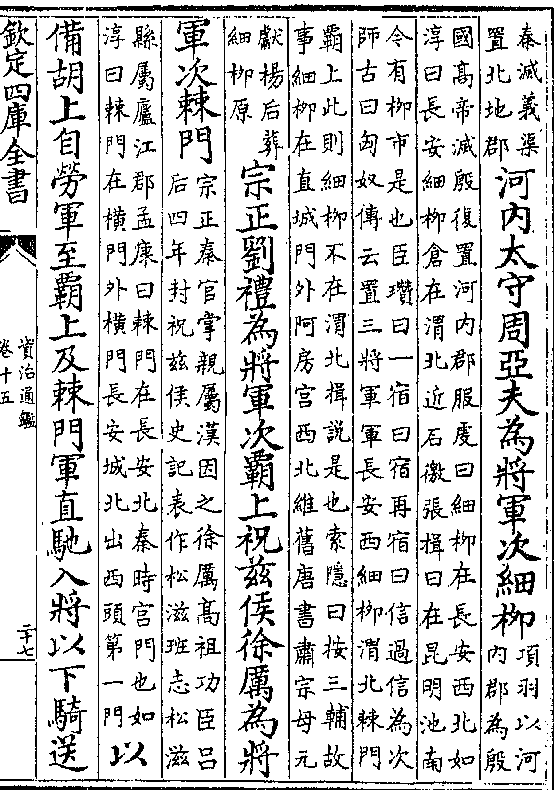 秦滅義渠
置北地郡
河内太守周亞夫為將軍次細栁
項羽以河
内郡為殷
國髙帝滅殷復置河内郡服䖍曰細栁在長安西北如
淳曰長安細栁倉在渭北近石徼張揖曰在昆明池南
令有栁市是也臣瓚曰一宿曰宿再宿曰信過信為次
師古曰匈奴傳云置三將軍軍長安西細栁渭北棘門
覇上此則細栁不在渭北揖説是也索隱曰按三輔故
事細栁在直城門外阿房宫西北維舊唐書肅宗母元
獻楊后葬
細栁原
宗正劉禮為將軍次霸上祝兹侯徐厲為將
軍次棘門
宗正秦官掌親屬漢因之徐厲髙祖功臣吕
后四年封祝兹侯史記表作松滋班志松滋
縣屬廬江郡孟康曰棘門在長安北秦時宫門也如
淳曰棘門在横門外横門長安城北出西頭第一門
以
備胡上自勞軍至霸上及棘門軍直馳入將以下騎送
欽定四庫全書
資治通鑑
卷十五
二十七